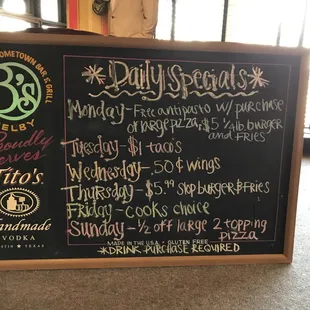 HOMETOWN BAR & GRILL
B's
SHELBY
Proudly
Serves
Tito's
Handmade
VODKA
AUSTIN ★ TEXAS
*Daily Specials*
Monday - Free antipasto w/ purchase
of large pizza, $5 1/4lb burger
and fries
Tuesday - $1 taco's
Wednesday - .50¢ wings
Thursday - $5.99 burger & fries
Friday - cooks choice
Sunday - ½ off large 2 topping
pizza
MADE IN THE USA • GLUTEN FREE
*DRINK PURCHASE REQUIRED